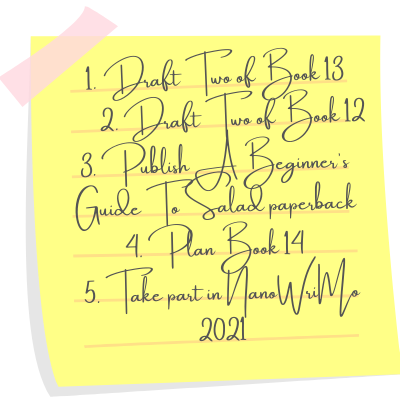 1. Draft Two of Book 13
2. Draft Two of Book 12
3. Publish A Beginner's
Guide To Salad paperback
4. Plan Book 14
5. Take part in NanoWriMo
2021